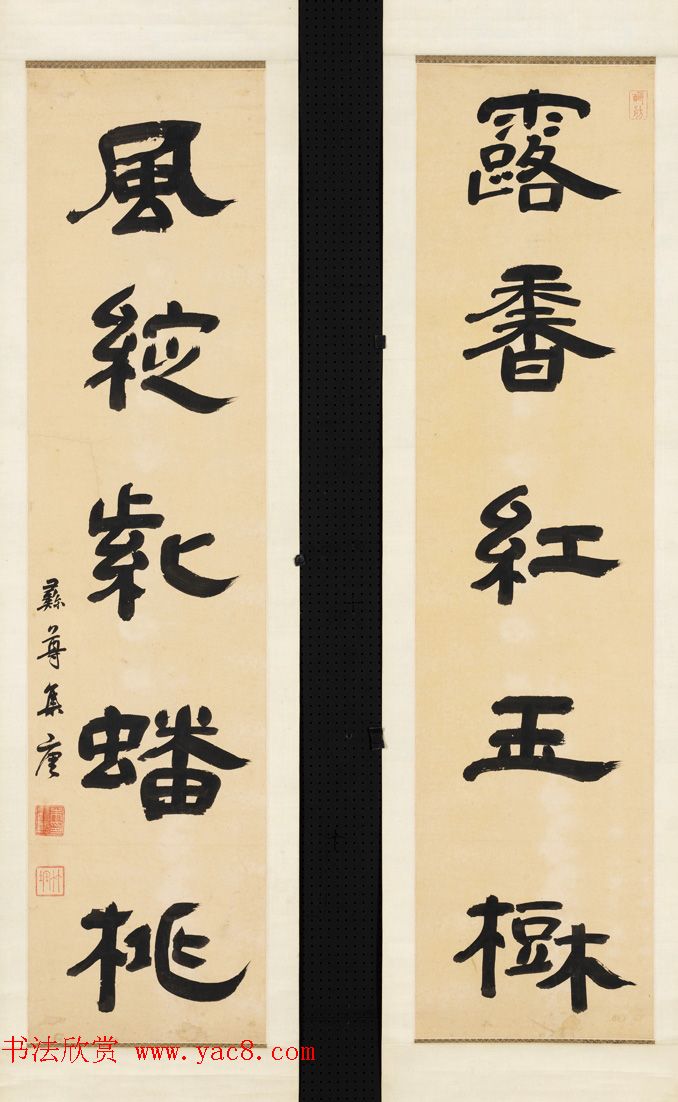 露香紅玉樹
風綻紫蟠桃
彝尊集唐
书法欣赏 www.yac8.com